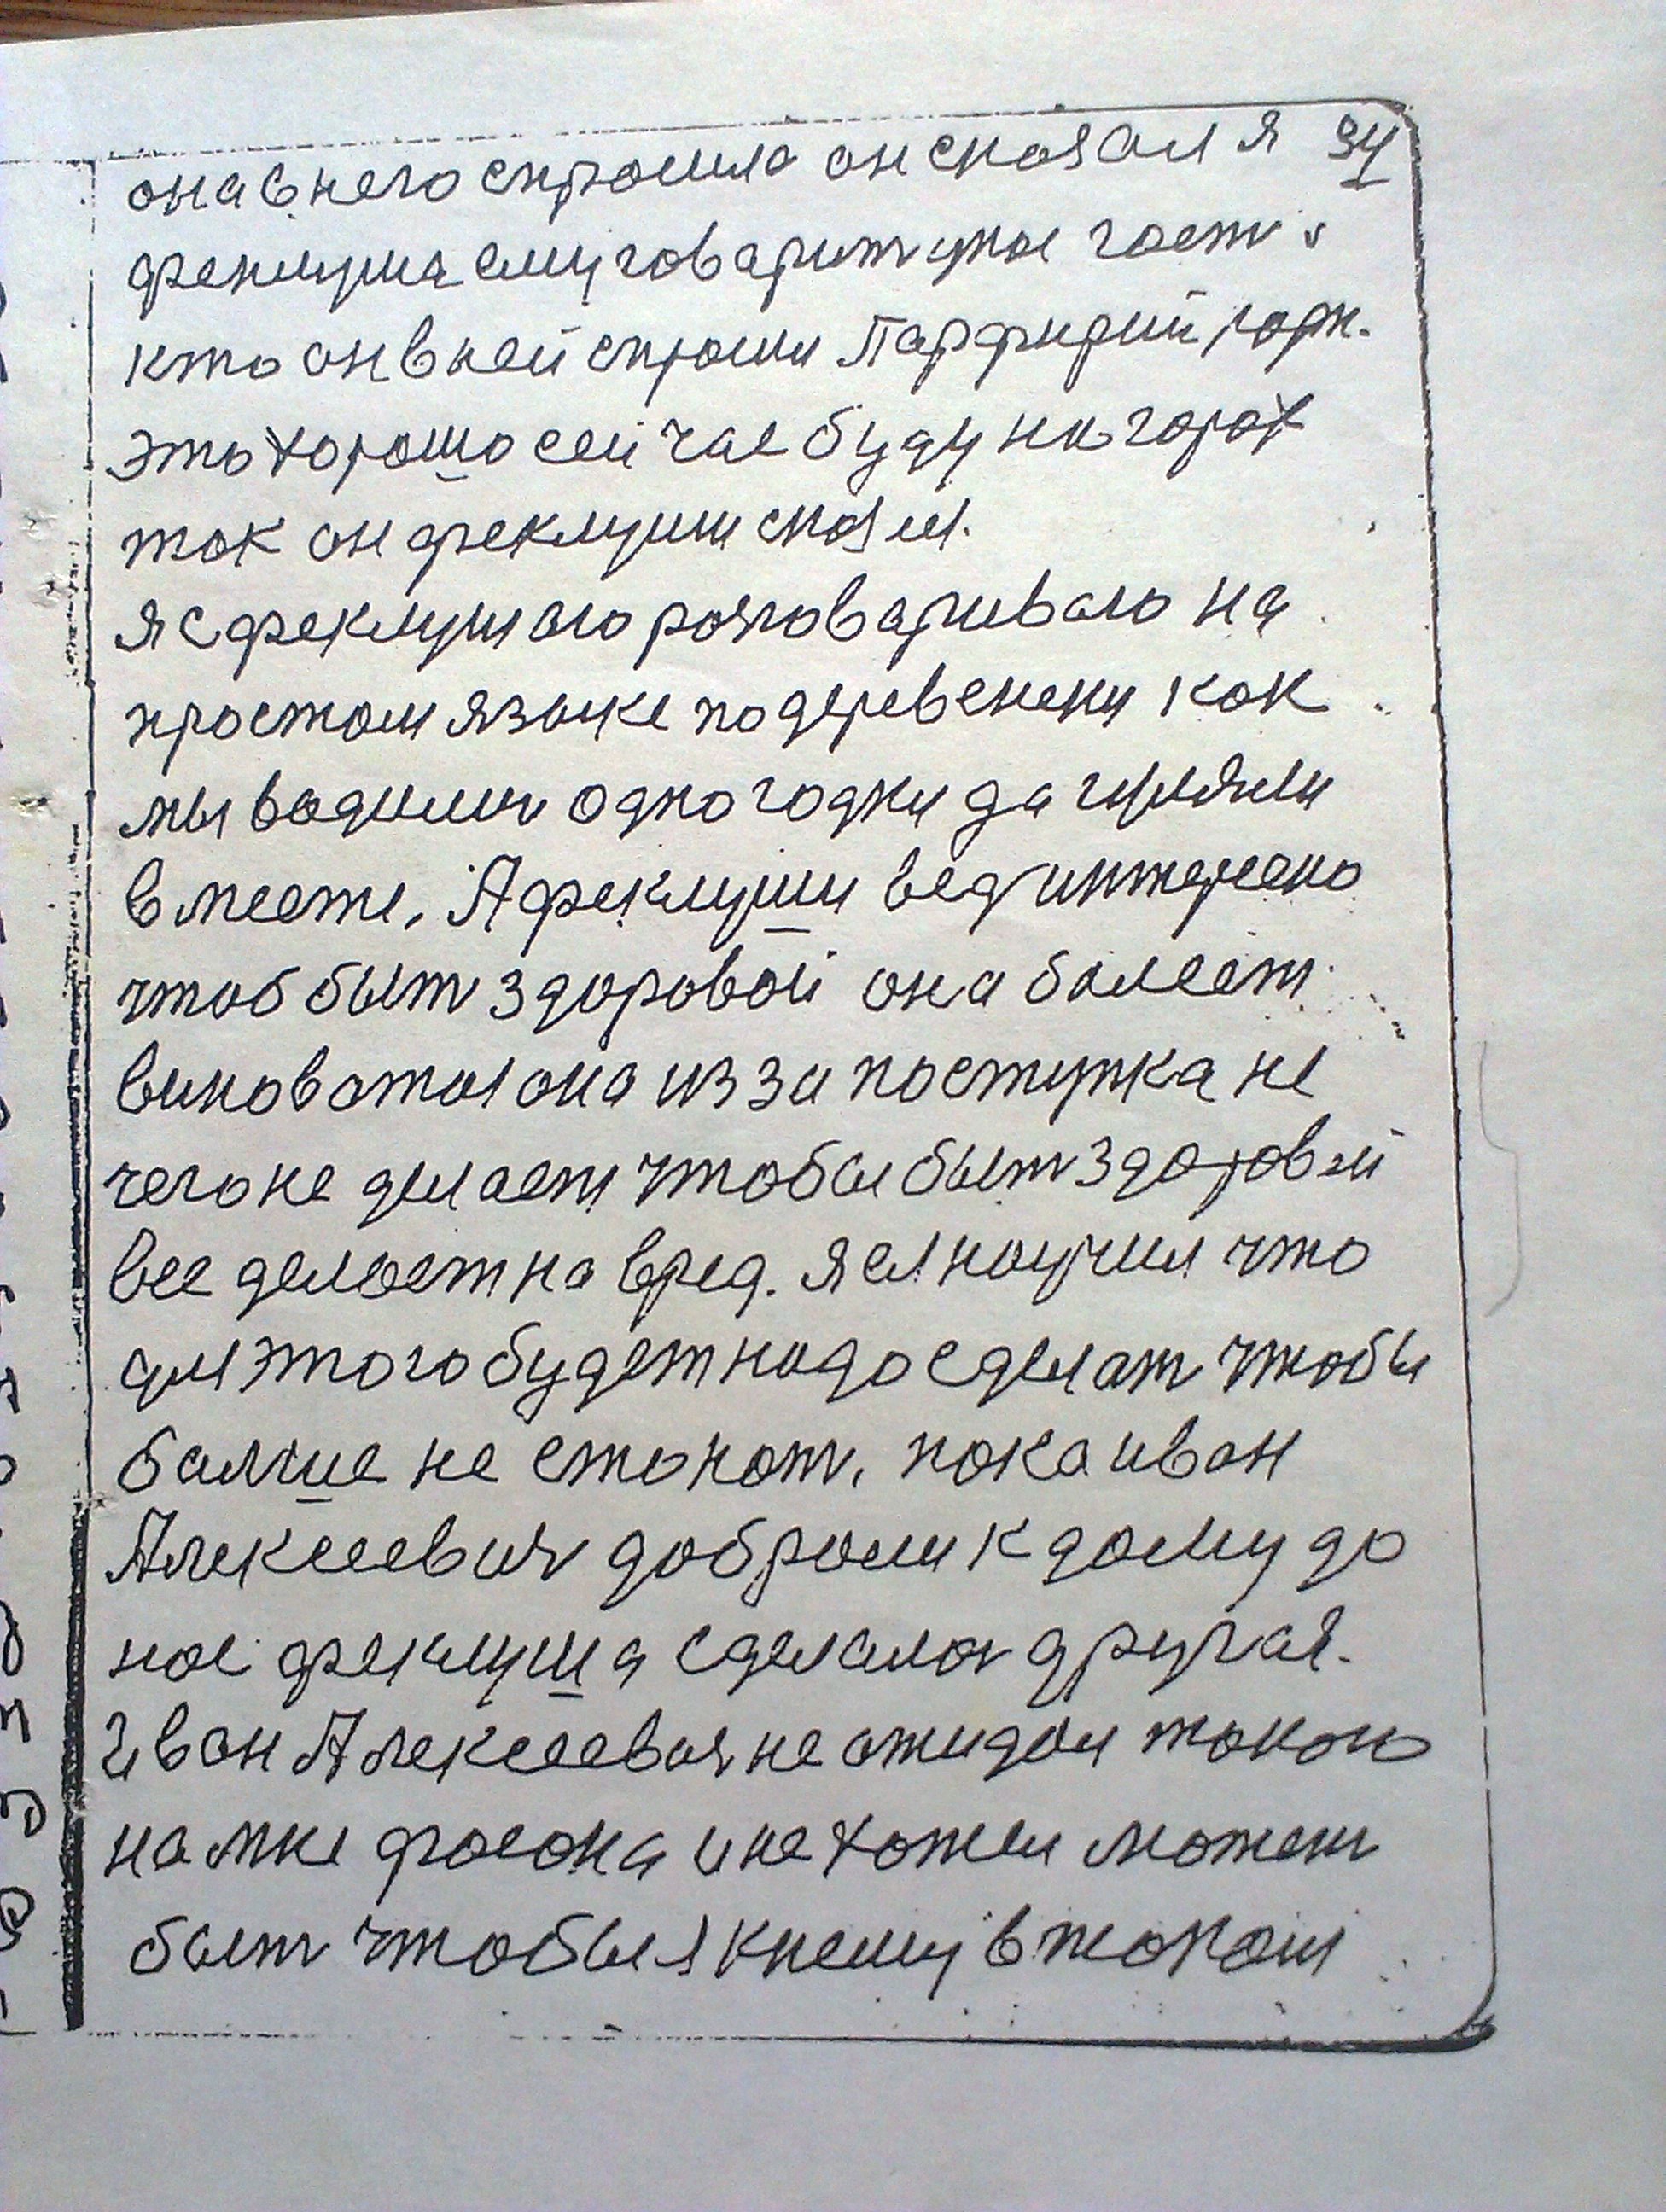 она в него спросила он сказал я 94
феклуша ему говарит у нас гость
кто он в ней спросил Парфирий Корн.
это хорошо сей час буду на горах
так он феклуши сказал.
я с феклушаю розговариваю на
простом языке по деревенски как
мы водили одногодки да гуляли
вместе, А феклуши вед интересно
чтоб быт здоровой она болеет
виноватая она из за поступка не
чего не делает чтобы быт здоровой
все делает на вред. я ея научил что
для этого будет надо сделат чтобы
балше не стонат, пока иван
Алексеевич добрался к дому до
нас феклуша сделалас другая.
Иван Алексеевич не ожидал такою
на мне фасона и не хотел может
быт чтобы я к нему в таком